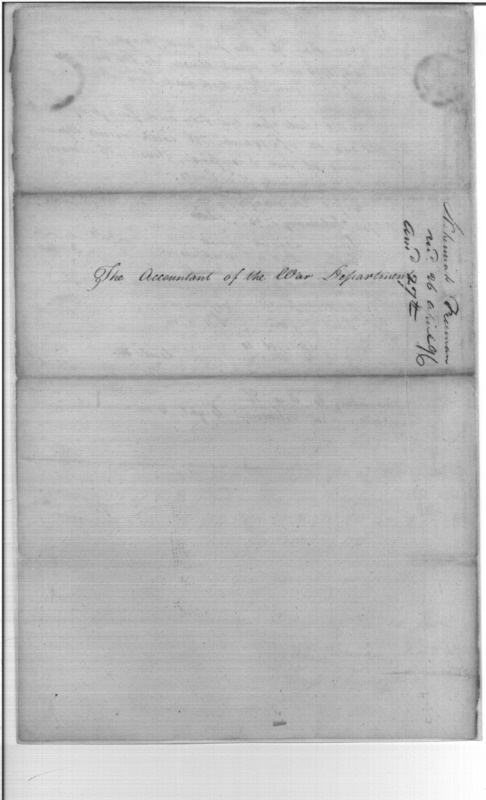 The Accountant of the War Department
Nehemiah Freeman
rec'd 26 April 96
ans'd 27th